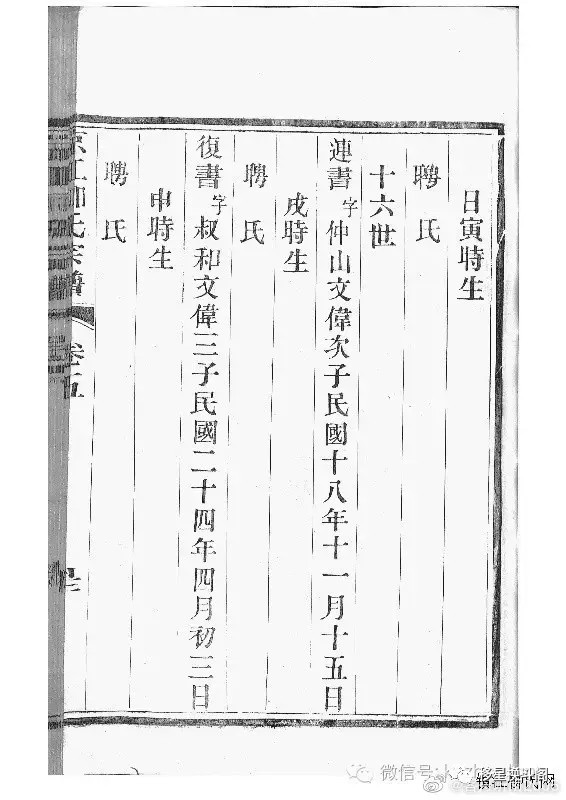 日寅時生
聘氏
十六世
連書字仲山文偉次子民國十八年十一月十五日
戌時生
聘氏
復書字叔和文偉三子民國二十四年四月初三日
申時生
聘氏
氏宗譜
卷五
微信号: